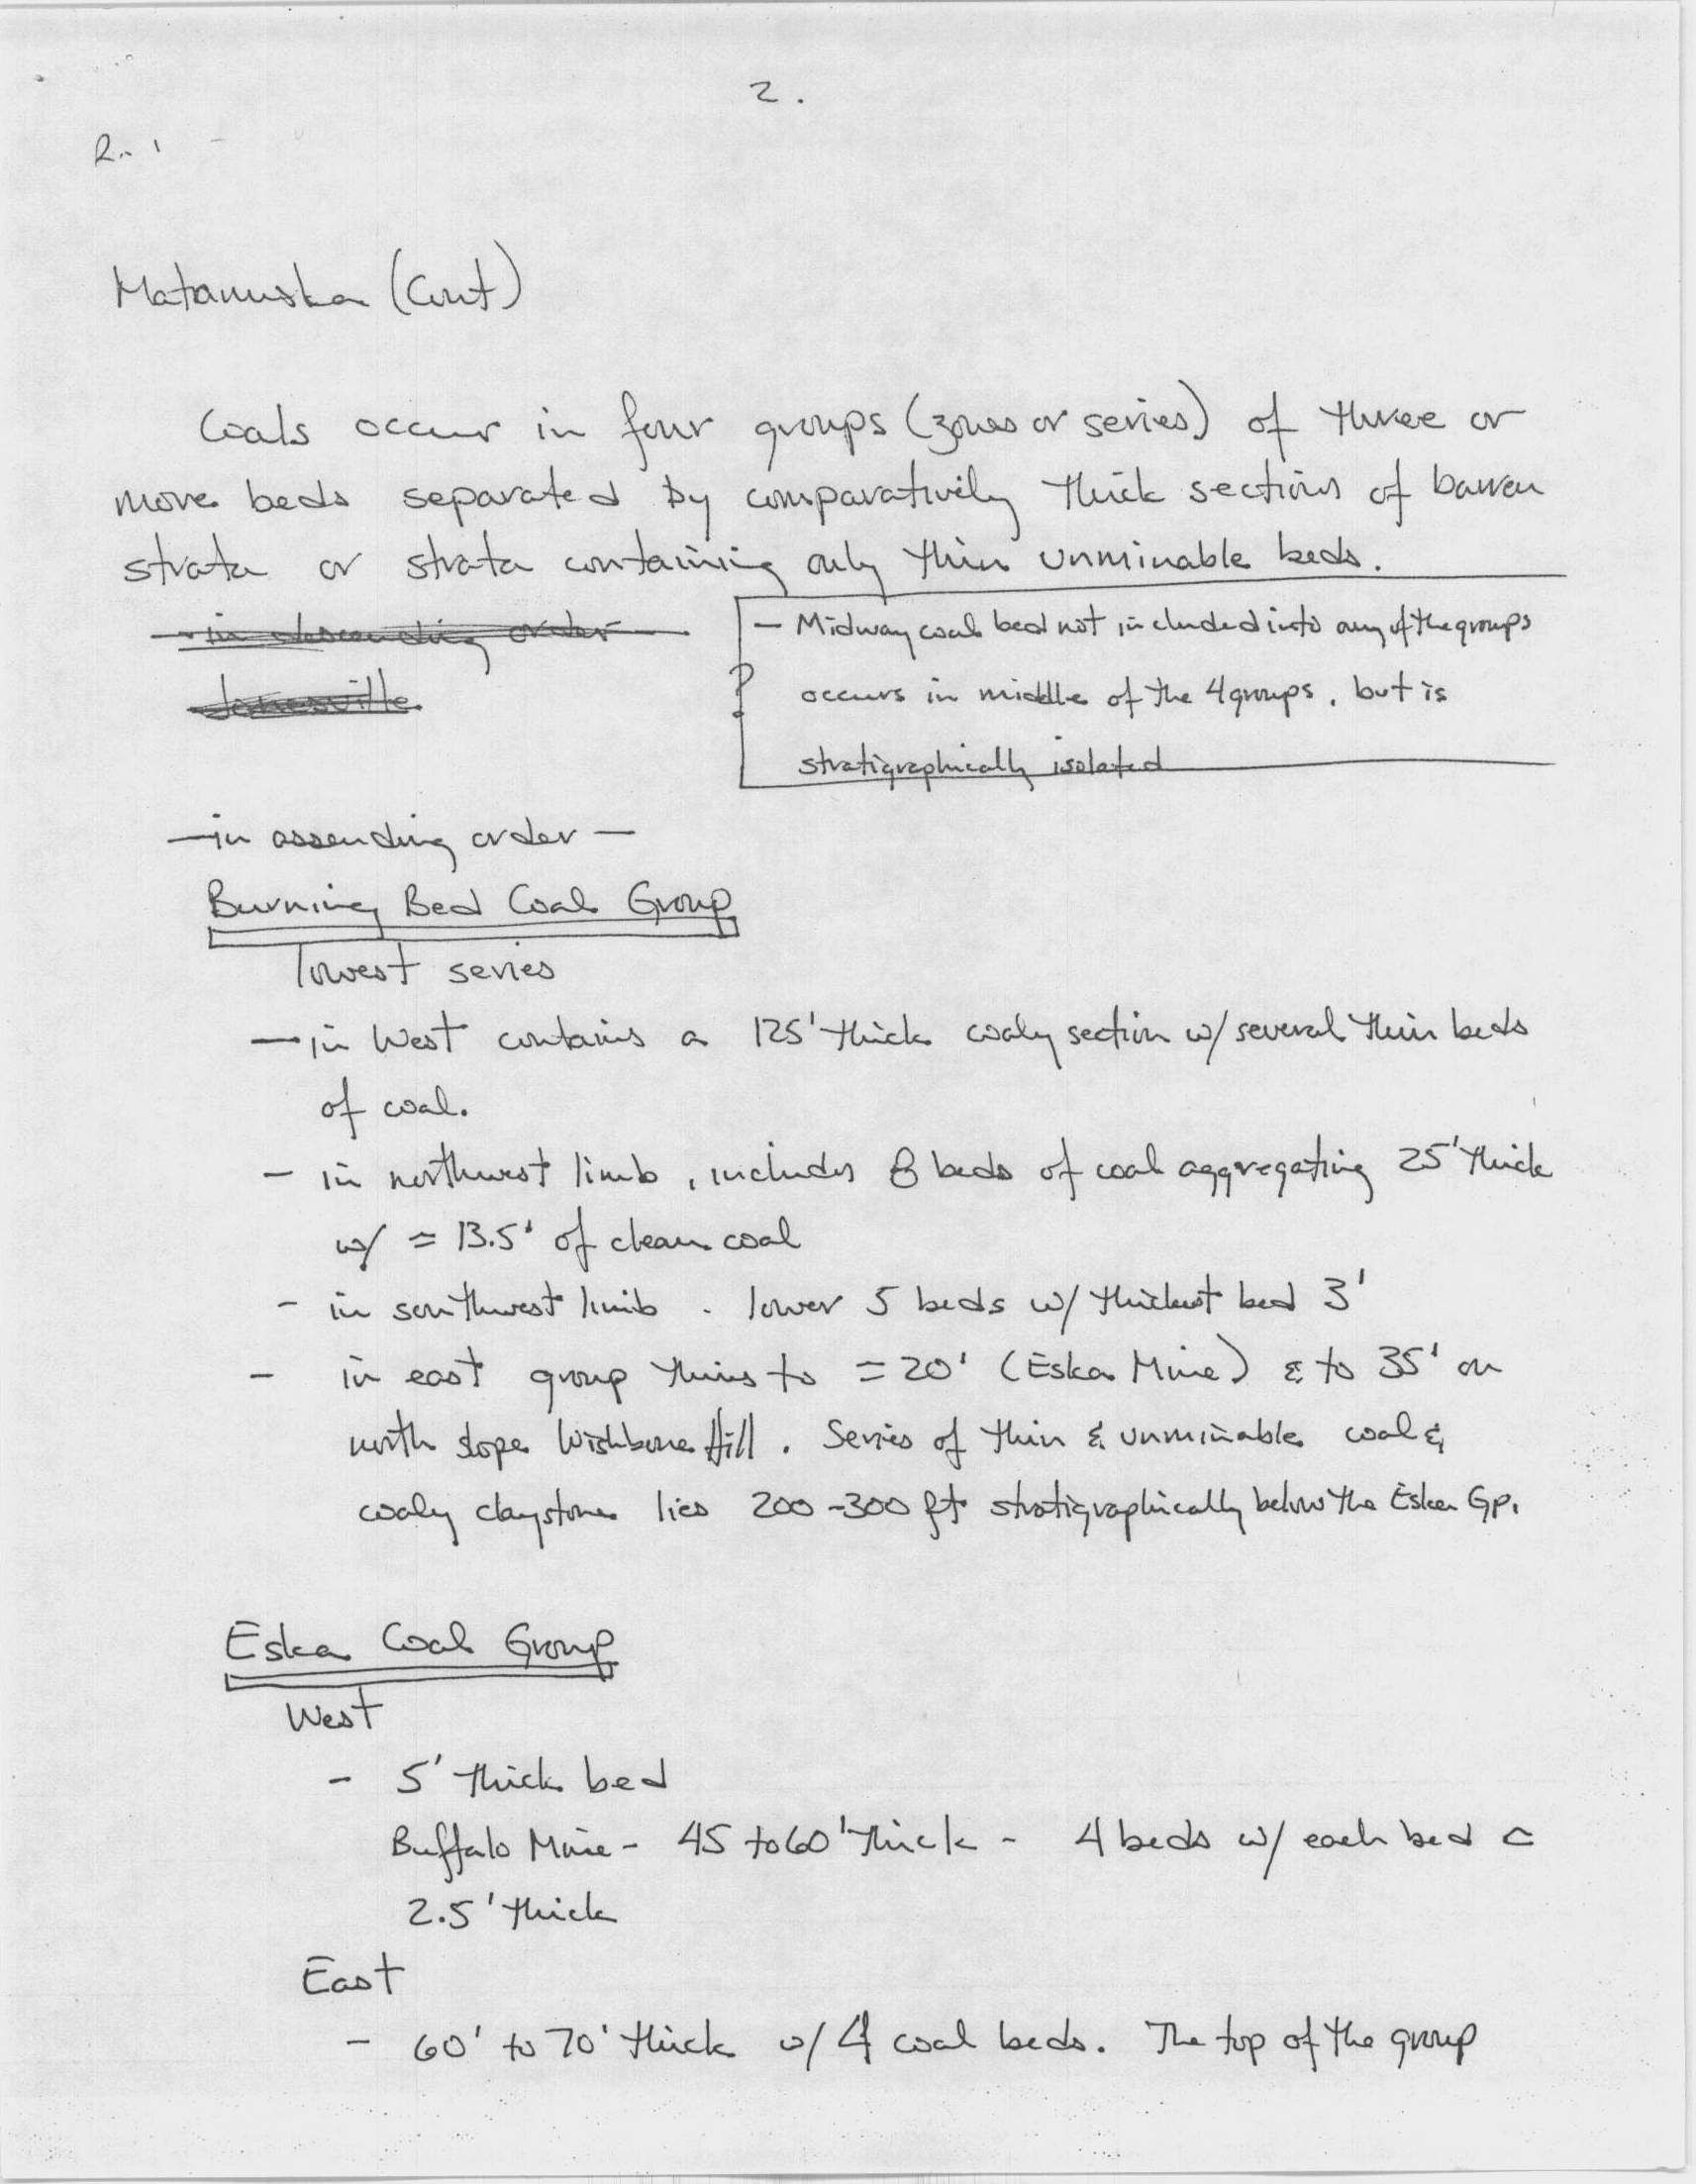 2.
Matanuska (Cont)
Coals occur in four groups (zones or series) of three or
more beds separated by comparatively thick sections of barren
strata or strata containing only thin unminable beds.
- in descending order -
Jonesville
- Midway coal bed not included into any of the groups
? occurs in middle of the 4 groups, but is
stratigraphically isolated
- in assending order -
Burning Bed Coal Group
lowest series
- in West contains a 125' thick coaly section w/ several thin beds
of coal.
- in northwest limb, includes 8 beds of coal aggregating 25' thick
w/ ≈ 13.5' of clean coal
- in southwest limb - lower 5 beds w/ thickest bed 3'
- in east group thins to ≈ 20' (Eska Mine) & to 35' on
north slope Wishbone Hill. Series of thin & unminable coal &
coaly claystone lies 200-300 ft stratigraphically below the Eska Gp.
Eska Coal Group
West
- 5' thick bed
Buffalo Mine - 45 to 60' thick - 4 beds w/ each bed <
2.5' thick
East
- 60' to 70' thick w/ 4 coal beds. The top of the group